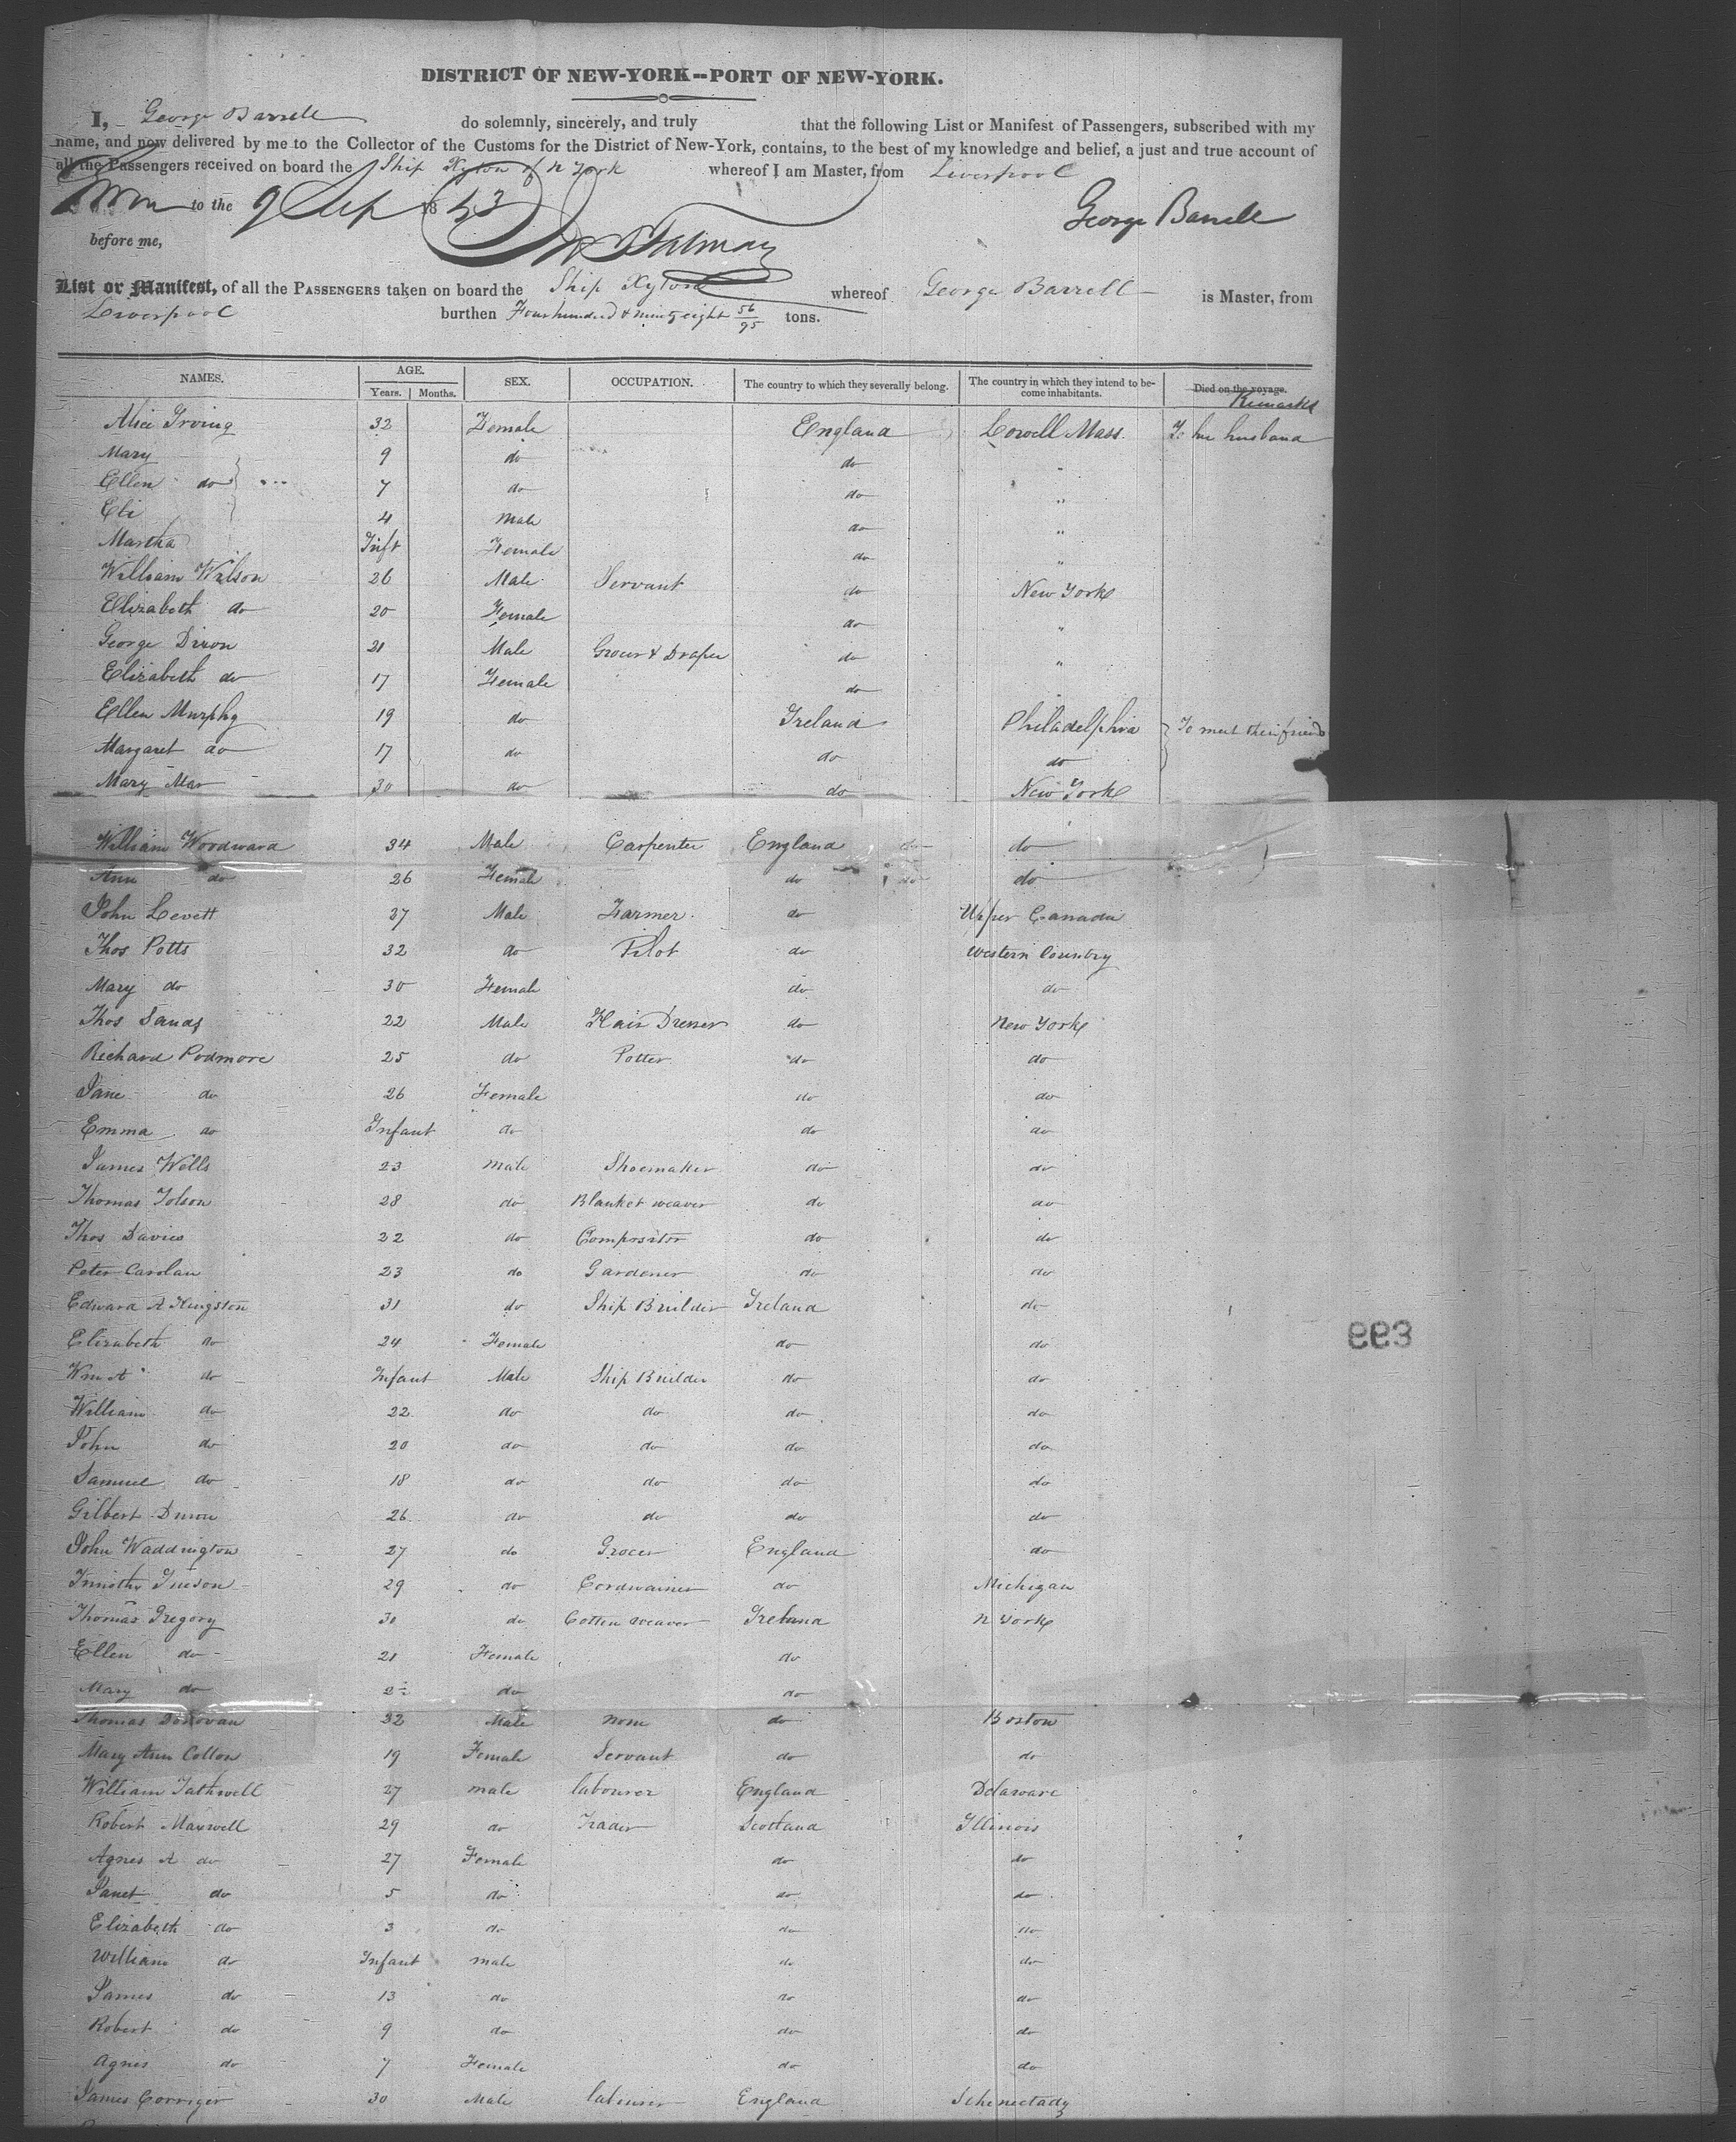 DISTRICT OF NEW-YORK--PORT OF NEW-YORK.
I, George Barrell do solemnly, sincerely, and truly that the following List or Manifest of Passengers, subscribed with my
name, and now delivered by me to the Collector of the Customs for the District of New-York, contains, to the best of my knowledge and belief, a just and true account of
all the Passengers received on board the Ship Xylon of N York whereof I am Master, from Liverpool
Sworn to the 9 Sep 18 George Barrell
before me,
List or Manifest, of all the PASSENGERS taken on board the Ship Xylon whereof George Barrell is Master, from
Liverpool burthen Four hundred & ninety eight 56/95 tons.
NAMES. AGE. Years. Months. SEX. OCCUPATION. The country to which they severally belong. The country in which they intend to become inhabitants. Died on the voyage. Remarks
Alice Irving 32 Female England Lowell Mass. To her husband
Mary 9 do do "
Ellen do 7 do do "
Eli 4 Male do "
Martha Inft Female do "
William Wilson 26 Male Servant do New York
Elizabeth do 20 Female do "
George Dixon 21 Male Grocer & Draper do "
Elizabeth do 17 Female do "
Ellen Murphy 19 do Ireland Philadelphia To meet their friends
Margaret do 17 do do do
Mary Mar 30 do do New York
William Woodward 34 Male Carpenter England do
Ann do 26 Female do do
John Levett 37 Male Farmer do Upper Canada
Thos Potts 32 do Pilot do Western Country
Mary do 30 Female do do
Thos Sands 22 Male Hair Dresser do New York
Richard Podmore 25 do Potter do do
Jane do 26 Female do do
Emma do Infant do do do
James Wells 23 male Shoemaker do do
Thomas Tolson 28 do Blanket weaver do do
Thos Davies 22 do Compositor do do
Peter Carolan 23 do Gardener do do
Edward A Kingston 31 do Ship Builder Ireland do
Elizabeth do 24 Female do do
Wm A do Infant Male Ship Builder do do
William do 22 do do do do
John do 20 do do do do
Samuel do 18 do do do do
Gilbert 26 do do do do
John Waddington 27 do Grocer England do
Timothy 29 do Cordwainer do Michigan
Thomas Gregory 30 do Cotton weaver Ireland N York
Ellen do 21 Female do
Mary do do do
Thomas Donovan 32 Male none do Boston
Mary Ann Collon 19 Female Servant do do
William Tathwell 27 male labourer England Delaware
Robert Maxwell 29 do Trader Scotland Illinois
Agnes A do 27 Female do do
Janet do 5 do do do
Elizabeth do 3 do do do
William do Infant male do do
James do 13 do do do
Robert do 9 do do do
Agnes do 7 Female do do
James Corriger 30 Male labourer England Schenectady